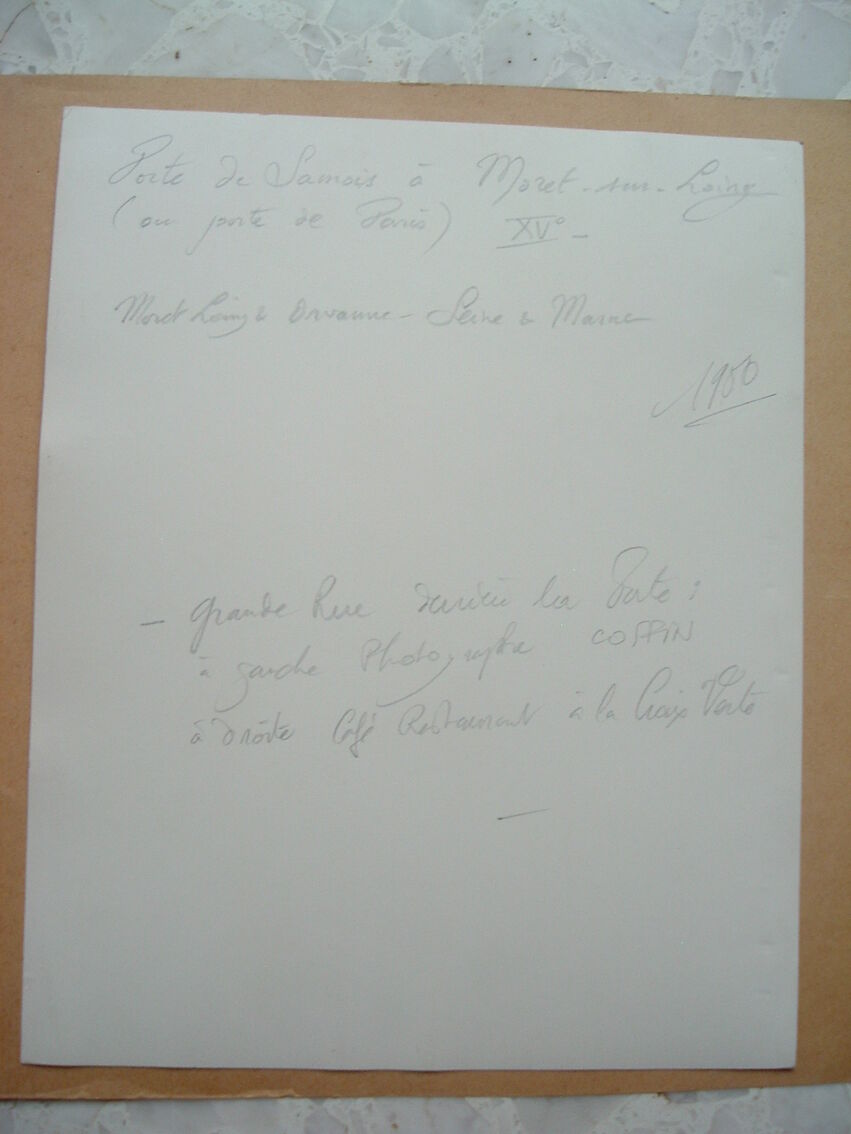 Porte de Samois à Moret-sur-Loing
(ou porte de Paris) XV° -
Moret Loing & Orvanne - Seine & Marne
1900
- Grande Rue derrière la Porte :
à gauche Photographe COFFIN
à droite Café Restaurant à la Croix Verte